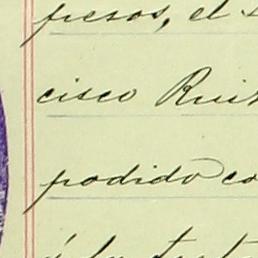 pesos, el
cisco Ruiz
podido co